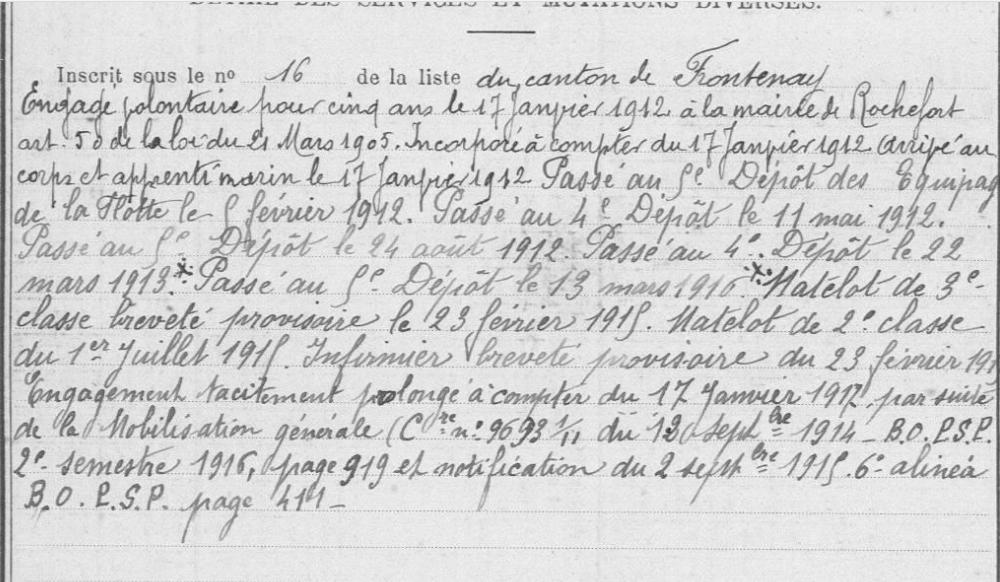 DÉTAIL DES SERVICES ET MUTATIONS DIVERSES.
Inscrit sous le no 16 de la liste du canton de Frontenay
Engagé volontaire pour cinq ans le 17 Janvier 1912 à la mairie de Rochefort
art. 50 de la loi du 21 Mars 1905. Incorporé à compter du 17 Janvier 1912. Arrivé au
corps et apprenti marin le 17 Janvier 1912 Passé au 5e Dépôt des Equipag
de la Flotte le 5 février 1912. Passé au 4e Dépôt le 11 mai 1912.
Passé au 5e Dépôt le 24 août 1912. Passé au 4e Dépôt le 22
mars 1913.* Passé au 5e Dépôt le 13 mars 1916.* Matelot de 3e
classe breveté provisoire le 23 février 1915. Matelot de 2e classe
du 1er Juillet 1915. Infirmier breveté provisoire du 23 février 191
Engagement tacitement prolongé à compter du 17 Janvier 1917, par suite
de la Mobilisation générale (Cre no 9693 1/11 du sept bre 1914 - B.O.P.S.P.
2e semestre 1916, page 919 et notification du 2 sept bre 1915. 6e alinéa
B.O.P.S.P. page 411 -